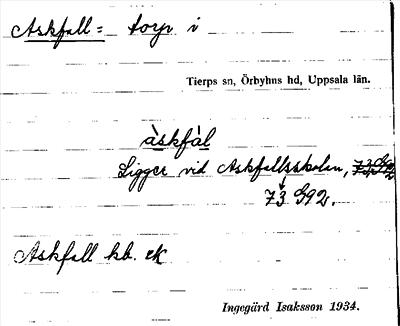 Askfall = torp i
Tierps sn, Örbyhns hd, Uppsala län.
àskfàl
Ligger vid Askfallsskolan,
73 S92.
Askfall hb. ek
Ingegärd Isaksson 1934.